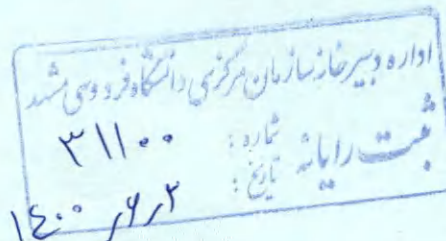 اداره دبیرخانه سازمان مرکزی دانشگاه فردوسی مشهد
ثبت رایانه
شماره: ۳۱۱۰۰
تاریخ: ۱۴۰۰٫۶٫۳